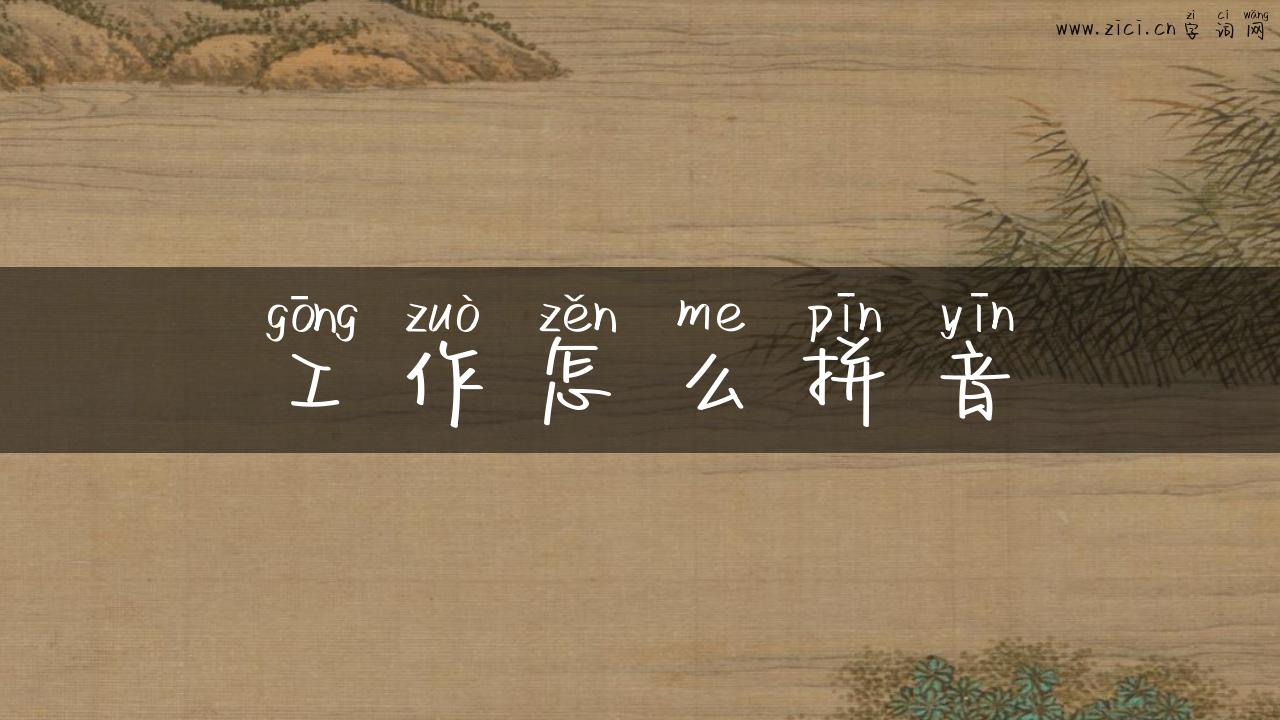 zì cí wǎng
www.zici.cn 字词网
gōng zuò zěn me pīn yīn
工作怎么拼音